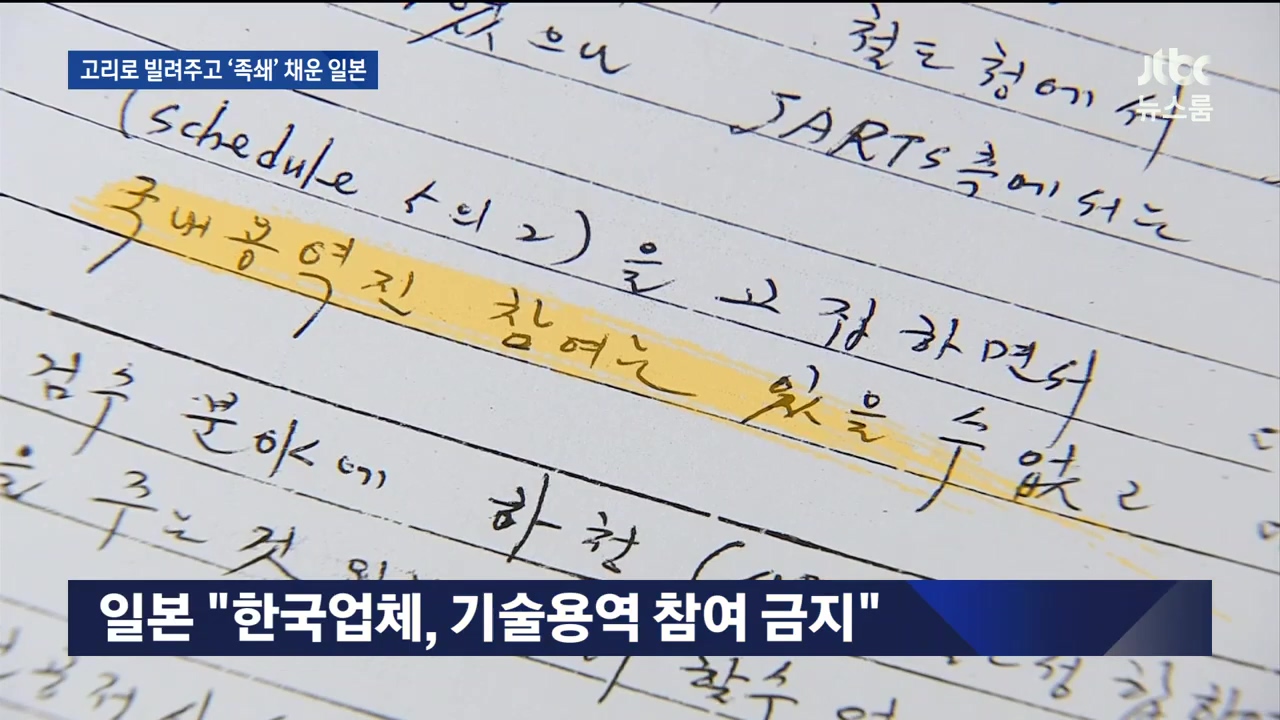 고리로 빌려주고 ‘족쇄’ 채운 일본
jtbc
뉴스룸
철도청에서
있으나 JARTS측에서는
(schedule 5의 2)을 고집하면서
국내용역진 참여는 있을 수 없고
검수 분야에 하청
을 주는 것
할 수
일본 "한국업체, 기술용역 참여 금지"